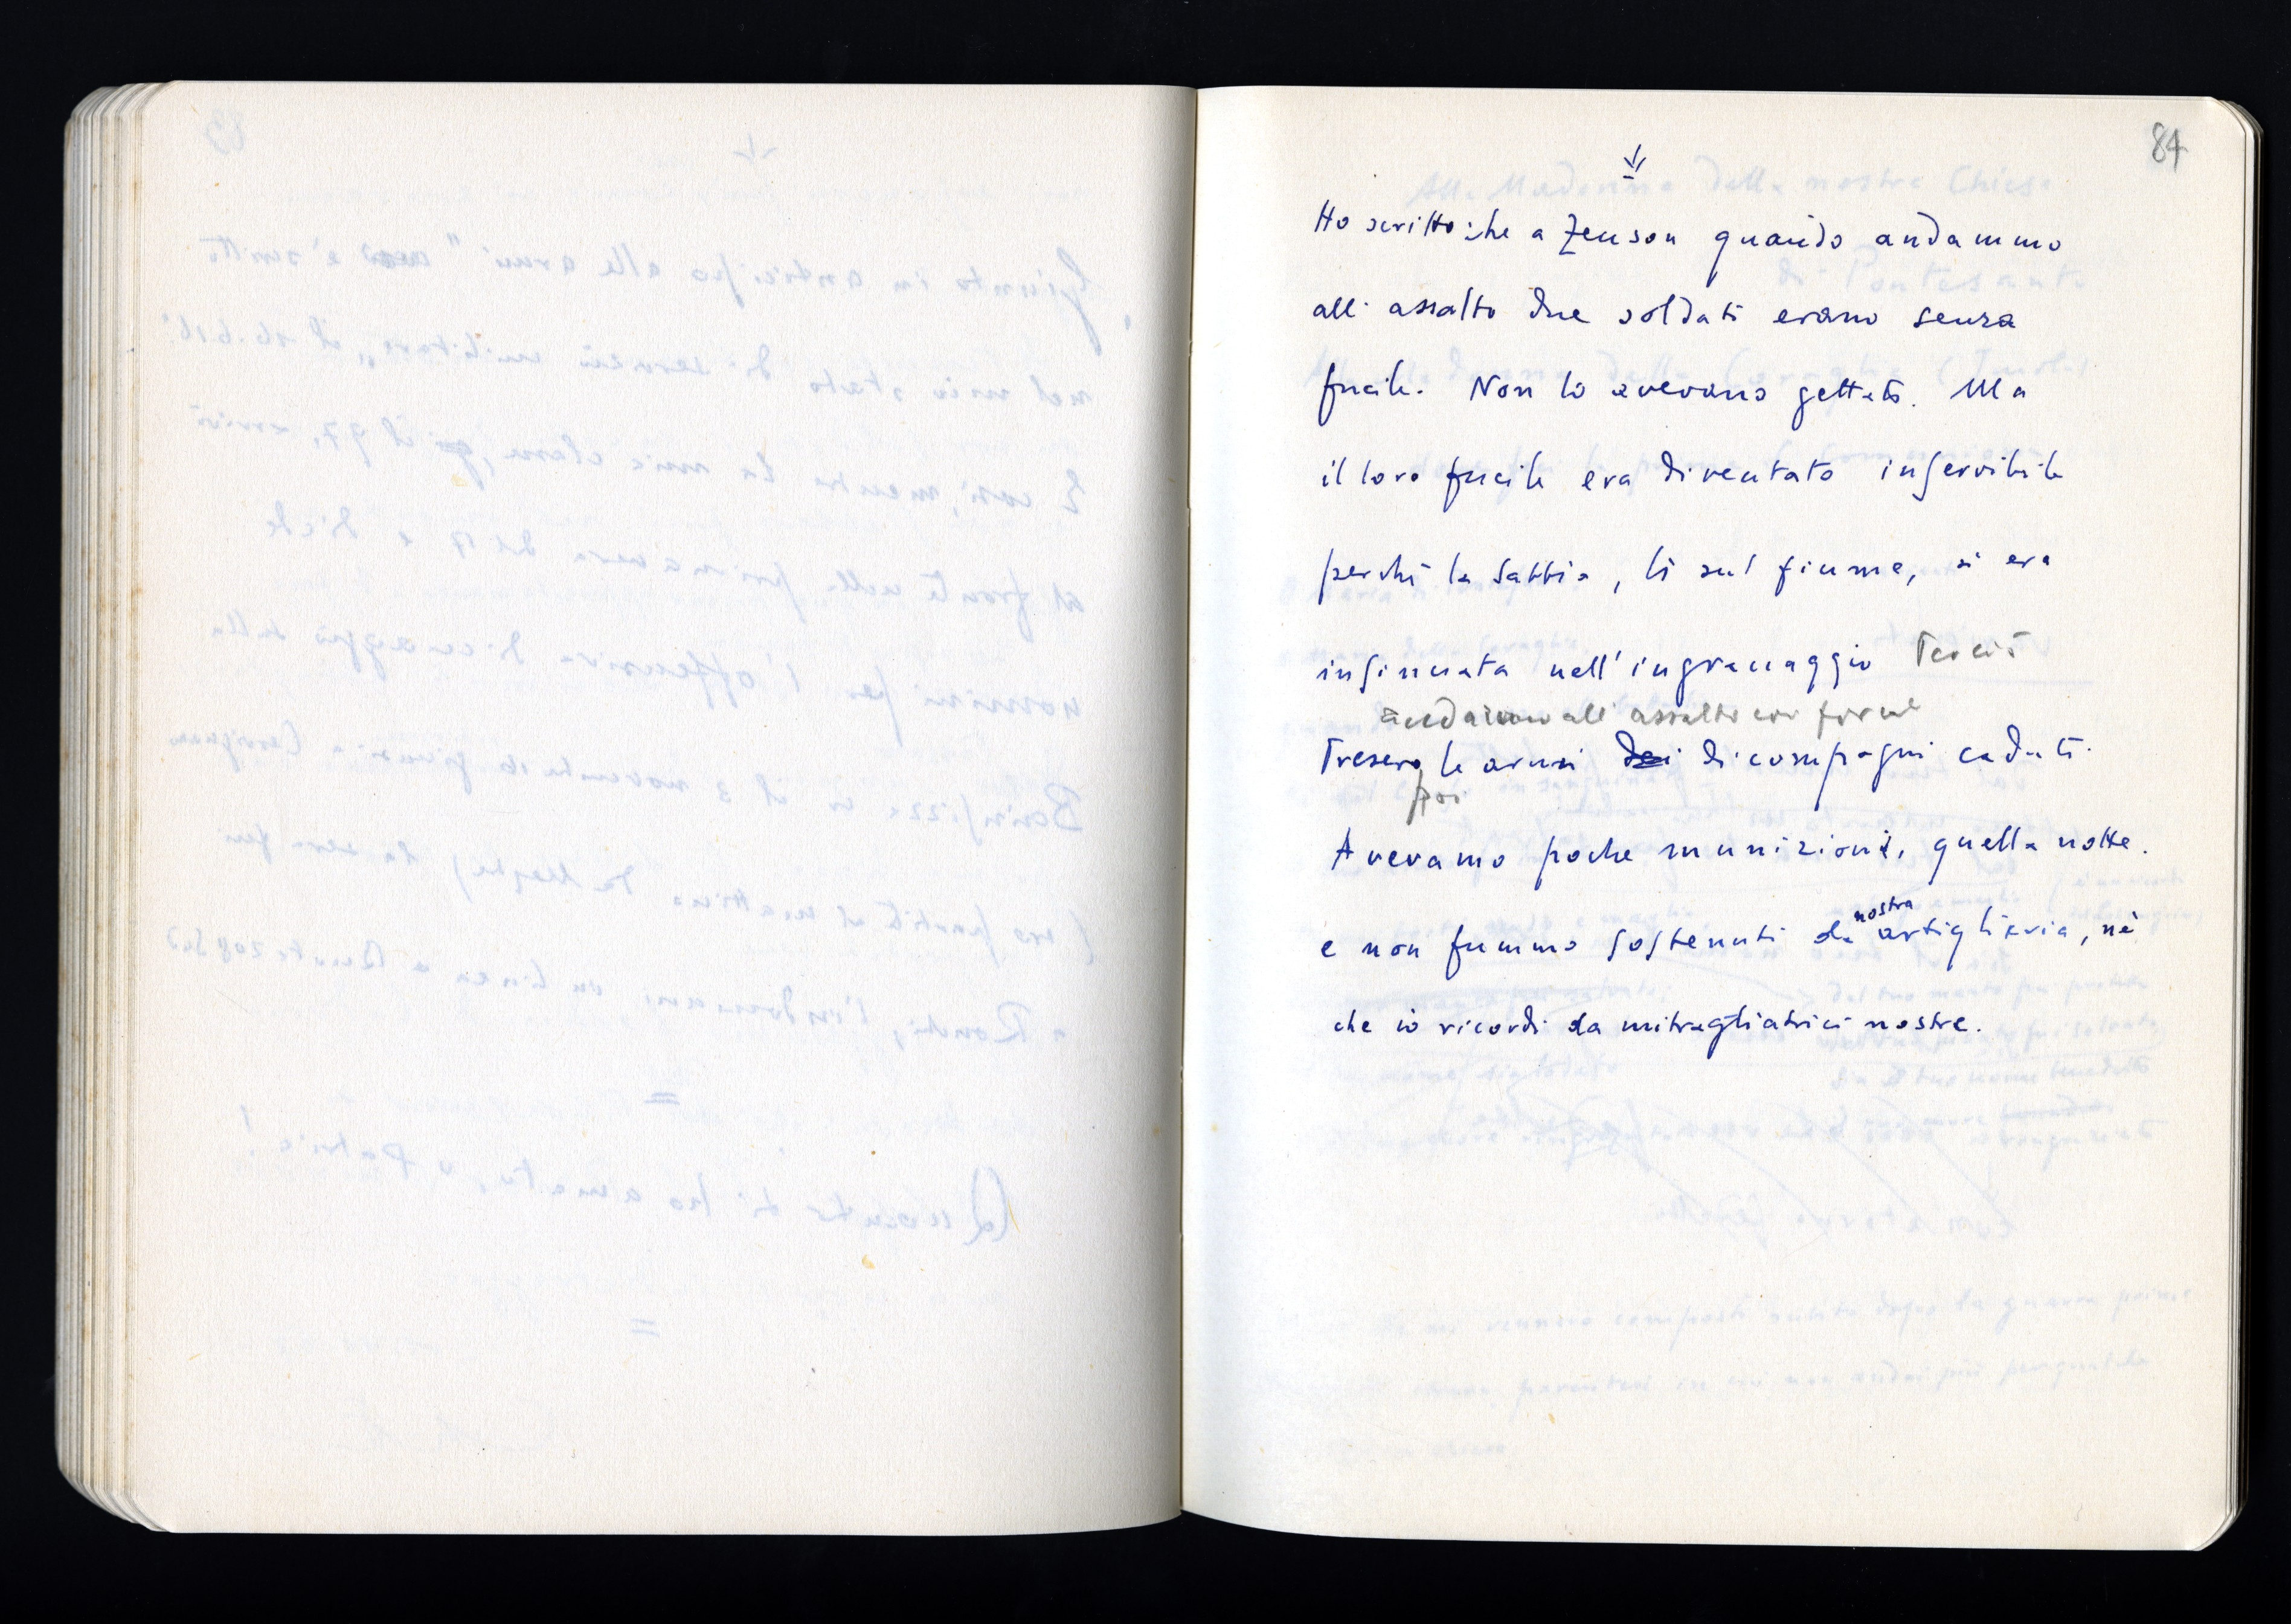 84
Ho scritto che a Zenson quando andammo
all'assalto due soldati erano senza
fucile. Non lo avevano gettato. Ma
il loro fucile era diventato inservibile
perché la sabbia, lì sul fiume, si era
insinuata nell'ingranaggio
all'assalto
Presero le armi dei di compagni caduti.
poi
Avevamo poche munizioni, quella notte.
nostra
e non fummo sostenuti da artiglieria, nè
che io ricordi da mitragliatrici nostre.